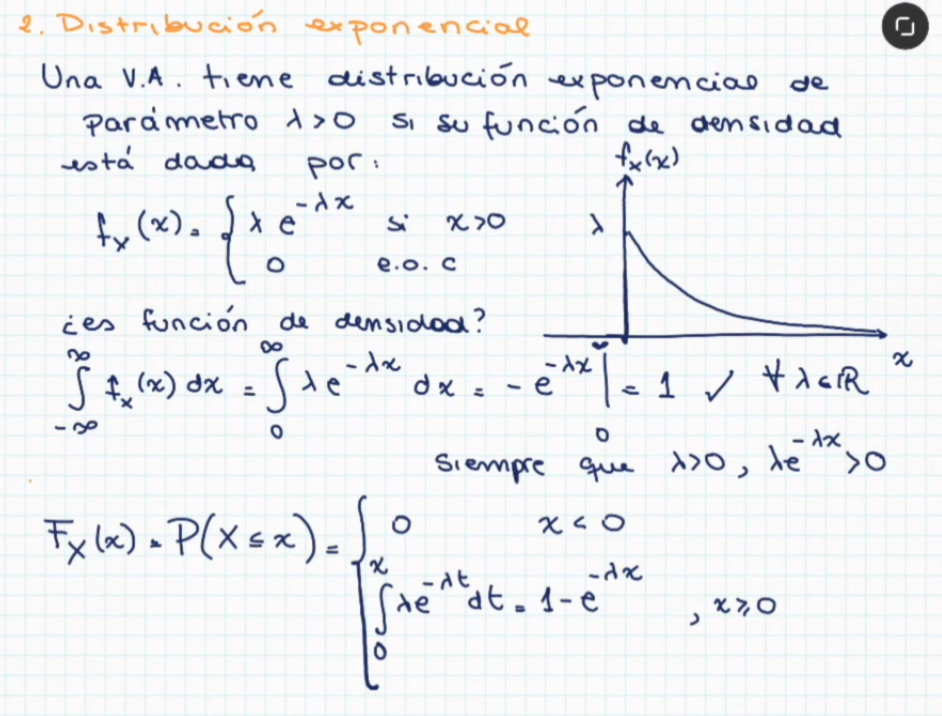 2. Distribución exponencial
Una V.A. tiene distribución exponencial de
parámetro λ>0 si su función de densidad
está dada por:
f_X(x)
f_X(x) = { λ e^{-λx} si x>0
0 e.o.c
λ
¿es función de densidad?
x
∫_{-∞}^{∞} f_X(x) dx = ∫_0^∞ λ e^{-λx} dx = - e^{-λx} |_0^∞ = 1 ✓ ∀ λ ∈ ℝ
siempre que λ>0, λe^{-λx}>0
F_X(x) = P(X ≤ x) = { 0 x < 0
∫_0^x λe^{-λt} dt = 1 - e^{-λx} , x ≥ 0